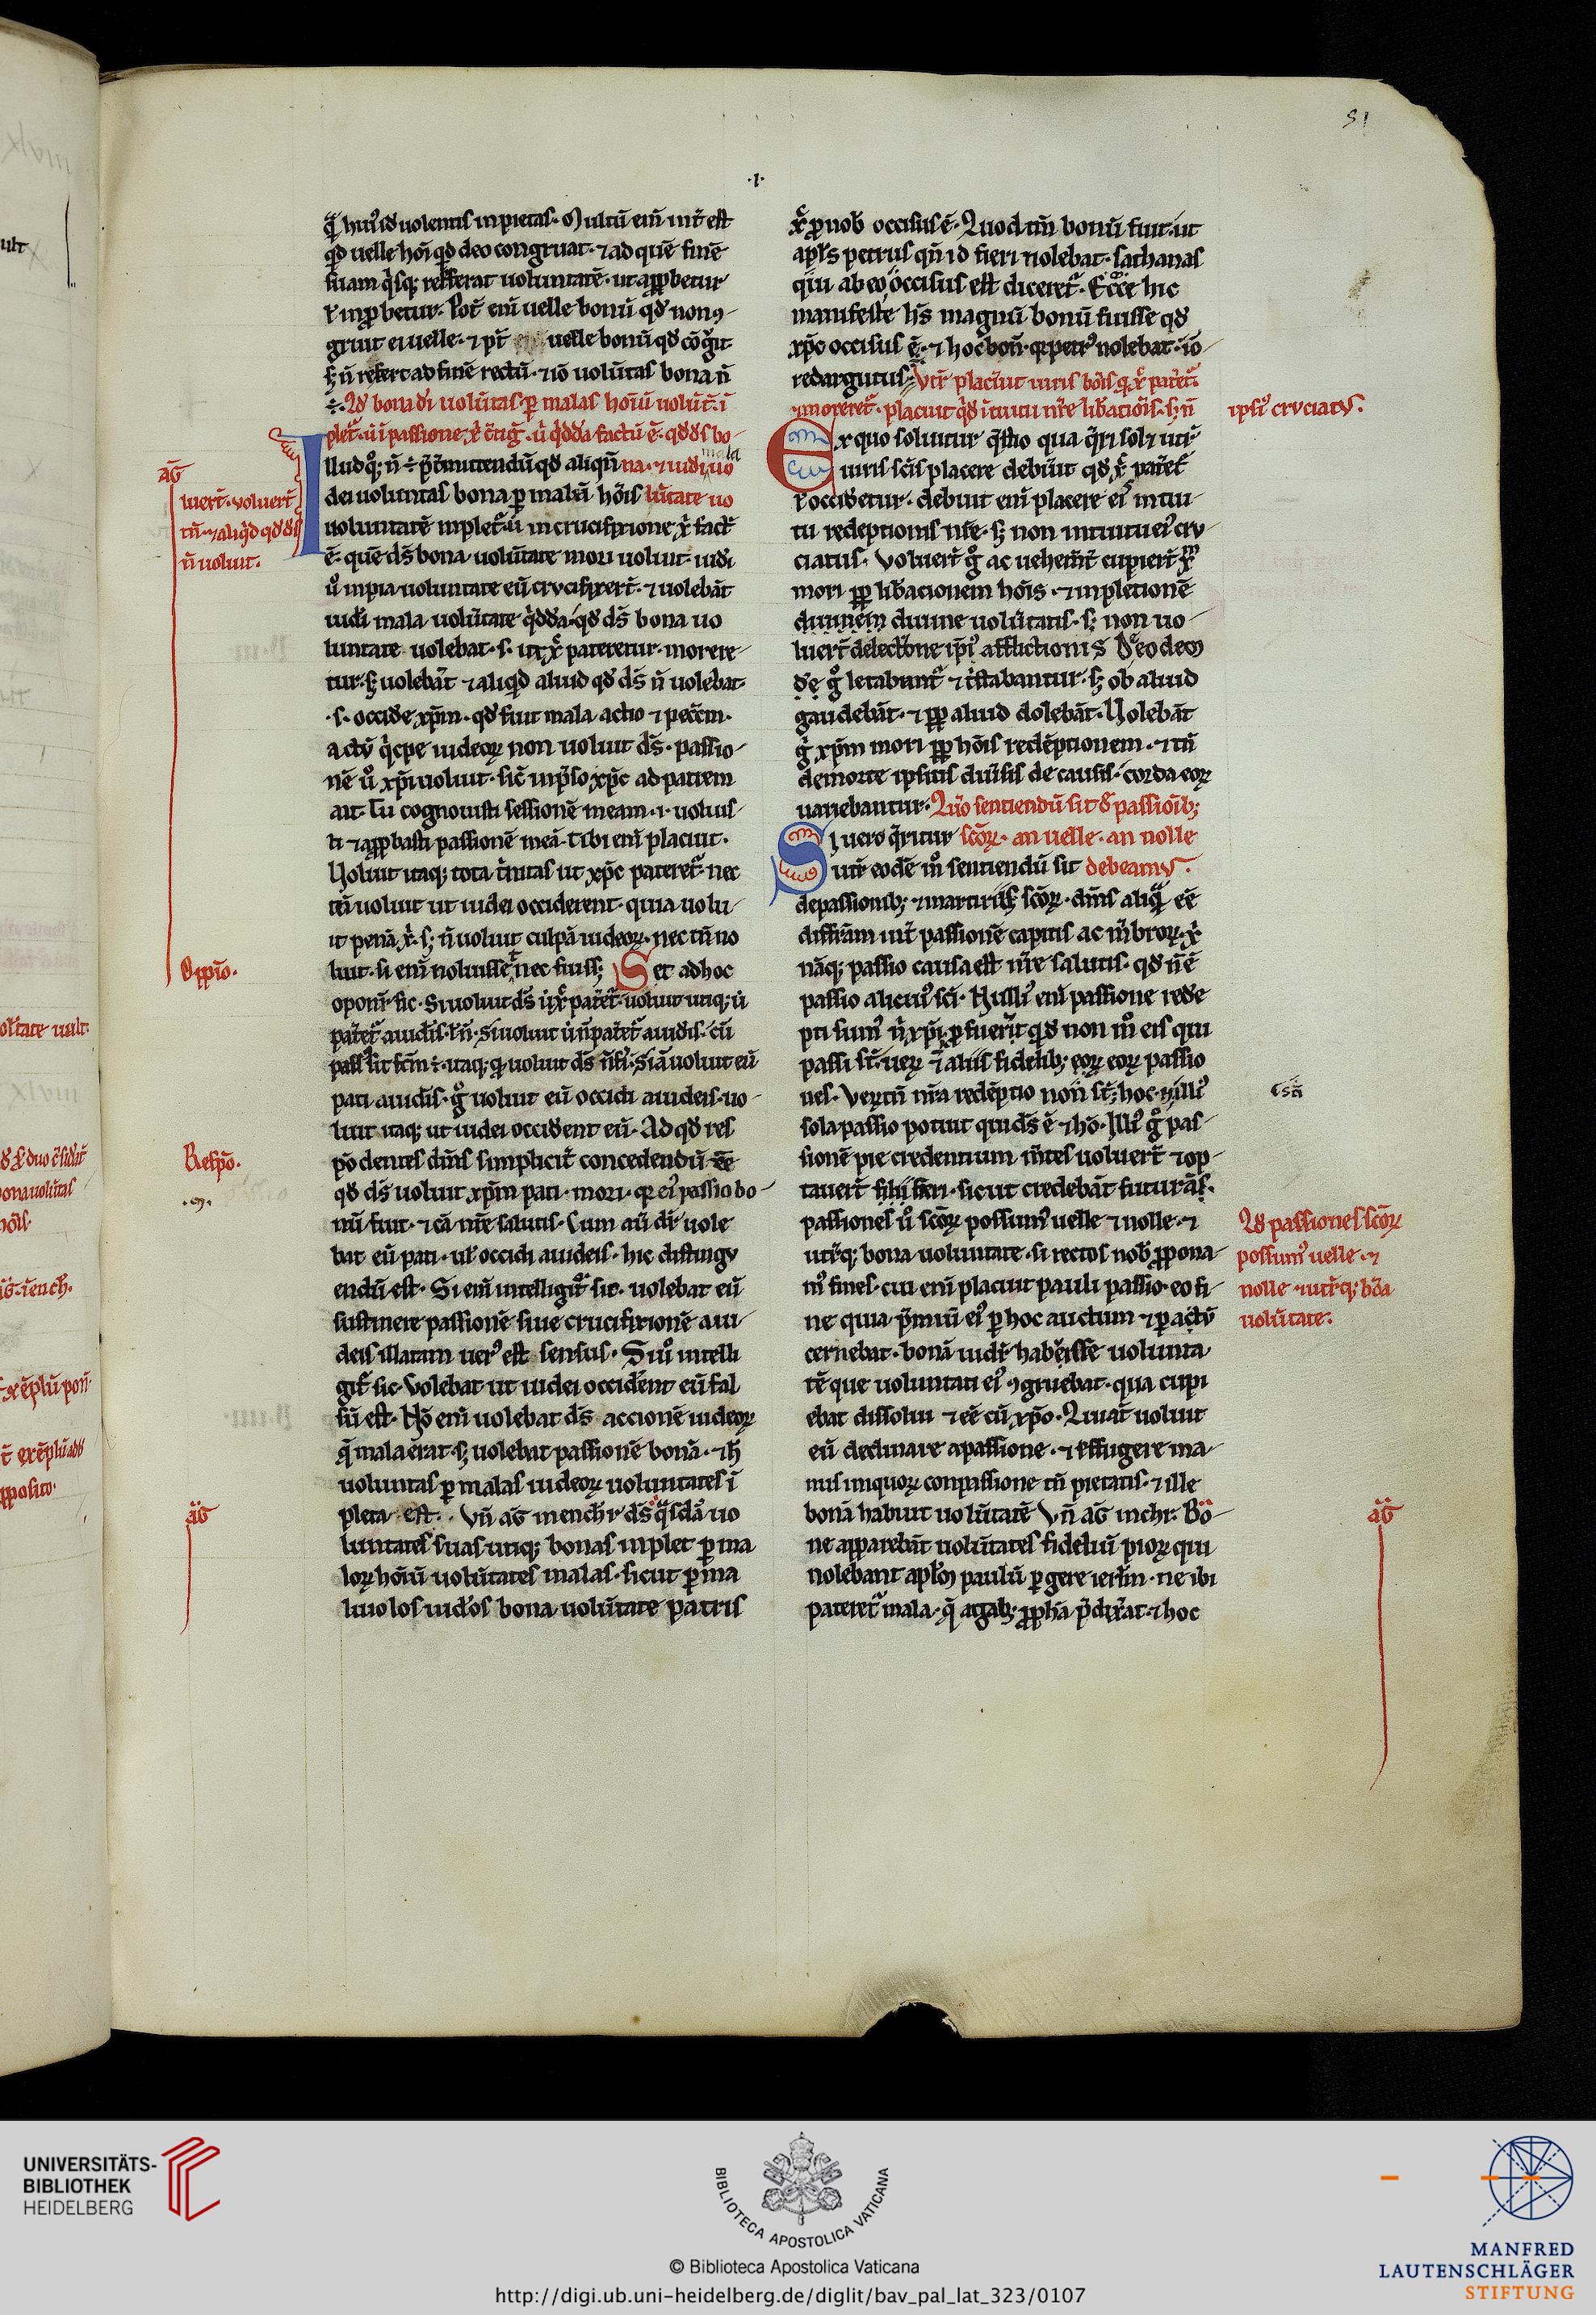 51
·I·
q̃ huiꝰ id uolentis inpietas. Multū em̄ int̄ est
qđ uelle hoī qđ deo congruat. ⁊ ad quē finē
suam q̇sq; referat uoluntatē. ut approbetur
ł inprobetur. Pot̄ em̄ uelle bonū qđ non ꝯ-
gruit ei uelle. ⁊ pt̄ uelle bonū qđ cōg̃it
sꝫ n̄ refert ad finē rectū. ⁊ iō uolūtas bona n̄
÷. Qđ bona di uolūtas. p̱ malas hoīū uolūt̄. ī
plet᷑. ꝉlludq; n̄ ÷ p̄t̄mittendū qđ aliqn̄
dei uoluntas bona p̱ malā hōis
uoluntatē inplet᷑. ut in crucifixione x̄ fact̄
ē. quē ds̄ bona uolūtate mori uoluit. iudi
ů inpia uoluntate eū crucifixert̄. ⁊ uolebāt
iudi mala uolūtate q̇dda. qđ ds̄ bona uo
luntate uolebat. s. ut x̄ pateretur. morere-
tur. sꝫ uolebāt ⁊ aliqđ aliud qđ ds̄ n̄ uolebat.
.s. occide xp̄m. qđ fuit mala actio ⁊ pecc̄m.
actū q̇cpe iudeoꝝ non uoluit ds̄. passio-
nē ů xp̄i uoluit. sic̄ inp̄so xp̄c ad patrem
ait. Tu cognouisti sessionē meam. .i. uoluis-
ti ⁊ approbasti passionē meā. tibi em̄ placuit.
Uoluit itaq; tota t̄nitas ut xp̄c pateret᷑. nec
tn̄ uoluit ut iudei occiderent. quia uolu-
it penā x̄. sꝫ n̄ uoluit culpā iudeoꝝ. nec tn̄ no
luit. si em̄ noluisset nec fuiss; Set ad hoc
oponit̄ sic. Si uoluit ds̄ ut x̄ patet᷑. uoluit utiq; ut
patet᷑ a iudis. ł n̄. Si uoluit ut n̄ patet᷑ a iudis. cū
pati a iudis. gͦ uoluit eū occidi a iudeis. uo-
luit itaq; ut iudei occident eū. Ad qđ res
pōdentes dm̄s simplicit̄ concedendū ee
qđ ds̄ uoluit xp̄m pati. mori. q̃ eiꝰ passio bo-
nū fuit. ⁊ cā nr̄e salutis. Cum aū dr̄ uole
bat eū pati. ul̄ occidi a iudeis. hic distingu
endū est. Si em̄ intelligit᷑ sic. uolebat eū
sustinere passionē siue crucifixionē a iu-
deis illatam uerꝰ est sensus. Si ů intelli
git᷑ sic. Volebat ut iudei occident eū fal
sū est. Nō em̄ uolebat ds̄ accionē iudeoꝝ
q̄ mala erat. sꝫ uolebat passionē bonā. ⁊ h̄
uoluntas p̱ malas iudeoꝝ uoluntates ī
pleta est. Vn̄ aḡ in enchr̄ ds̄ q̇sdā uo
luntates suas utiq; bonas inplet p̱ ma
loꝝ hoīū uolūtates malas. sicut p̱ ma
liuolos iudos bona uolūtate patris
aḡ
luert̄. voluert̄
tn̄ ⁊ aliq̇d qđ ds̄
n̄ uoluit.
Oppīo.
Respō.
aḡ
x̄ ꝓ nob̄ occisus ē. Quod tn̄ bonū fuit. ut
apl̄s petrus qn̄ id fieri nolebat. sathanas
q̇ui ab eo occisus est diceret᷑. Ecce hic
manifeste h̄s magnū bonū fuisse qđ
xp̄c occisus ē. ⁊ hoc bon̄. q̃ petrꝰ nolebat. iō
redargutus. Vtr̄ placuit uiris bōis q̃ x̄ patet᷑.
⁊ moreret᷑. placuit q̇d ītuitu nr̄e lib̄atiōis. sꝫ n̄
Ex quo soluitur q̄stio qua q̄ri solꝫ utr̄
uiris sc̄is placere debuit qđ x̄ patet᷑
ł occidetur. debuit em̄ placere eiꝰ intui-
tu redeptionis nr̄e. sꝫ non intuitu eiꝰ cru-
ciatus. Voluert̄ gͦ ac uehem̄t̄ cupiert̄ x̄m
mori ꝓp lib̄acionem hōis. ⁊ inpletionē
diuinem diuine uolūtatis. sꝫ non uo-
luert̄ delectōne ip̄iꝰ afflictionis De eodem
de gͦ letabant᷑ ⁊ t̄stabantur. sꝫ ob aliud
gaudebāt. ⁊ ꝓp aliud dolebāt. Uolebāt
gͦ xp̄m mori ꝓp hōis redēptionem. ⁊ tn̄
de morte ipsius diuisis de causis. corda eoꝝ
uariebantur. Quo sentiendū sit d̄ passioīb;
Si uero q̄ritur sc̄oꝝ. an uelle. an nolle
utr̄ eodē mͦ sentiendū sit debeamus.
de passionib; ⁊ martiriis sc̄oꝝ. dm̄s aliq̄ eē
diffr̄am int̄ passionē capitis ac m̄broꝝ. x̄
nāq; passio causa est nr̄e salutis. qđ n̄ ē
passio alicuiꝰ sc̄i. Nulliꝰ em̄ passione rede
pti sumꝰ n̄ xp̄i. ꝓfuerūt qđ non mͦ eis qui
passi st̄. ueꝝ ⁊ aliis fidelib; eoꝝ eoꝝ passio
nes. Veꝝtn̄ nr̄a redēptio non st̄. hoc illiꝰ
sola passio potuit qui ds̄ ē ⁊ hō. Illiꝰ gͦ pas-
sionē pie credentium m̄tes uoluert̄ ⁊ op-
tauert̄ fieri. sicut credebāt futurās.
passiones ů sc̄oꝝ possumꝰ uelle ⁊ nolle. ⁊
utr̄q; bona uoluntate. si rectos nob̄ ꝓpona-
mꝰ fines. cui em̄ placuit pauli passio. eo fi-
ne quia p̄miū eiꝰ p̱ hoc auctum ⁊ paratū
cernebat. bonā uidr̄ habuisse uolunta
tē que uoluntati eiꝰ ꝯgruebat. qua cupi
ebat dissolui ⁊ eē cū xp̄o. Qui at̄ uoluit
eū declinare a passione. ⁊ effugere ma-
nus iniquoꝝ conpassione tn̄ pietatis. ⁊ ille
bonā habuit uolūtatē Vn̄ aḡ in chr̄. Bo-
ne apparebāt uolūtates fideliū pioꝝ qui
nolebant apl̄m paulū pergere ierl̄m. ne ibi
pateret᷑ mala. q̄ agab; ꝓph̄a p̄dix̄at. ⁊ hoc
ipsiꝰ cruciatus.
Qđ passiones sc̄oꝝ
possumꝰ uelle. ⁊
nolle. ⁊ utr̄q; b̄oa
uolūtate.
aḡ
UNIVERSITÄTS-
BIBLIOTHEK
HEIDELBERG
BIBLIOTECA APOSTOLICA VATICANA
© Biblioteca Apostolica Vaticana
http://digi.ub.uni-heidelberg.de/diglit/bav_pal_lat_323/0107
MANFRED
LAUTENSCHLÄGER
STIFTUNG